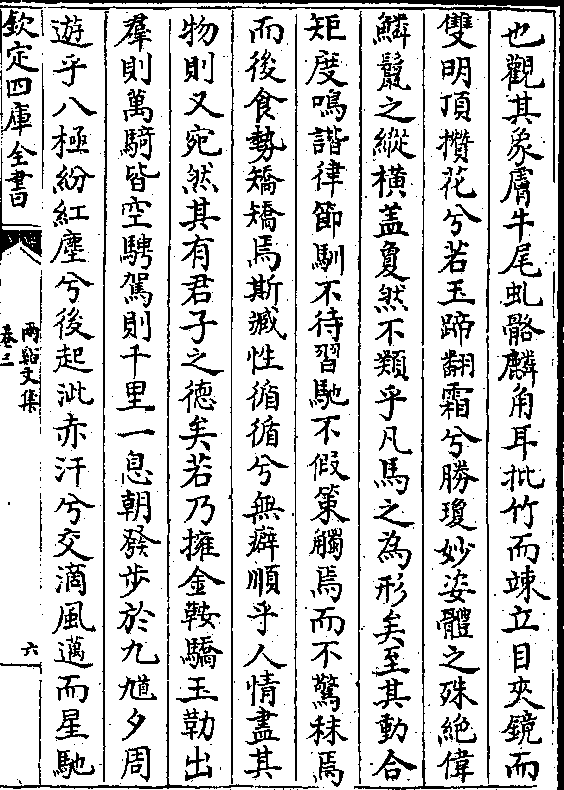 也觀其象膚牛尾虬骼麟角耳批竹而竦立目夾鏡而
雙明頂攢花兮若玉蹄翻霜兮勝瓊妙姿體之殊絶偉
鱗鬛之縱橫盖夐然不類乎凡馬之為形矣至其動合
矩度鳴諧律節馴不待習馳不假策觸焉而不驚秣焉
而後食勢矯矯焉斯臧性循循兮無癖順乎人情盡其
物則又宛然其有君子之德矣若乃擁金鞍驕玉勒出
羣則萬騎皆空騁駕則千里一息朝發歩於九馗夕周
遊乎八極紛紅塵兮後起泚赤汗兮交滴風邁而星馳
欽定四庫全書
兩谿文集
卷三
六